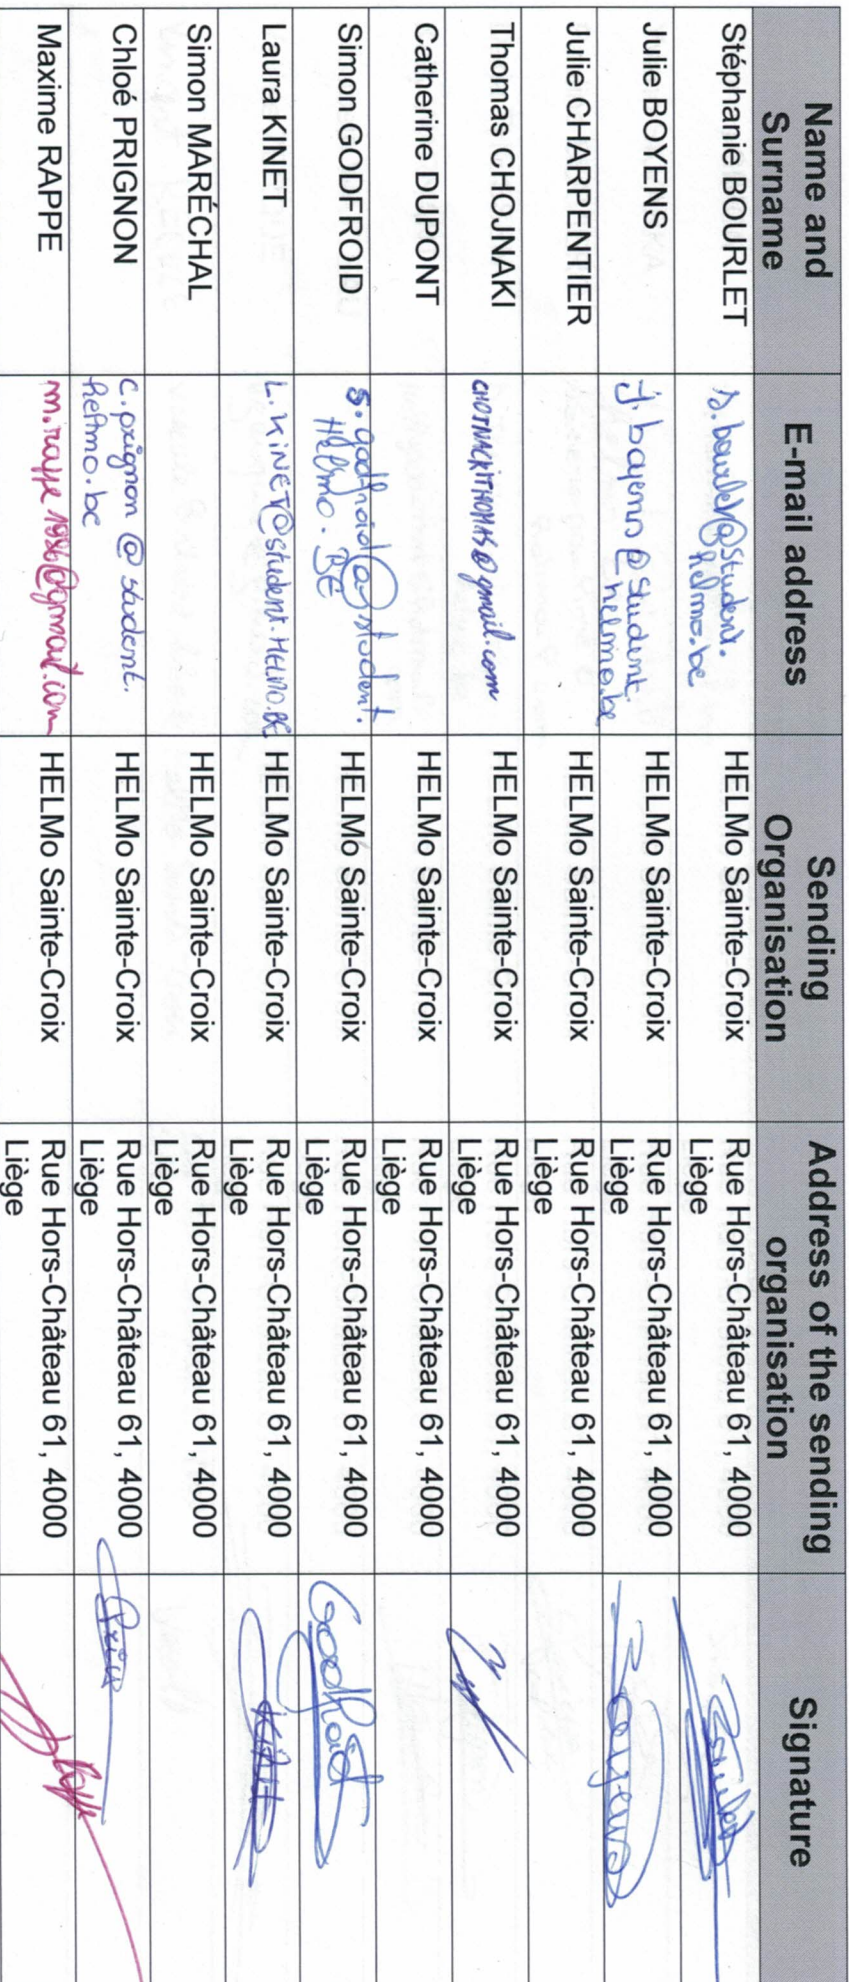 Name and
Surname
E-mail address
Sending
Organisation
Address of the sending
organisation
Signature
Stéphanie BOURLET
s.bourlet@student.
helmo.be
HELMo Sainte-Croix
Rue Hors-Château 61, 4000
Liège
Bourlet
Julie BOYENS
j.boyens@student.
helmo.be
HELMo Sainte-Croix
Rue Hors-Château 61, 4000
Liège
Boyens
Julie CHARPENTIER
HELMo Sainte-Croix
Rue Hors-Château 61, 4000
Liège
Thomas CHOJNAKI
CHOJNACKITHOMAS@gmail.com
HELMo Sainte-Croix
Rue Hors-Château 61, 4000
Liège
Catherine DUPONT
HELMo Sainte-Croix
Rue Hors-Château 61, 4000
Liège
Simon GODFROID
s.godfroid@student.
HELmo.BE
HELMo Sainte-Croix
Rue Hors-Château 61, 4000
Liège
Godfroid
Laura KINET
L.KINET@student.HELMO.BE
HELMo Sainte-Croix
Rue Hors-Château 61, 4000
Liège
Kinet
Simon MARÉCHAL
HELMo Sainte-Croix
Rue Hors-Château 61, 4000
Liège
Chloé PRIGNON
c.prignon@student.
helmo.be
HELMo Sainte-Croix
Rue Hors-Château 61, 4000
Liège
Maxime RAPPE
m.rappe1996@gmail.com
HELMo Sainte-Croix
Rue Hors-Château 61, 4000
Liège